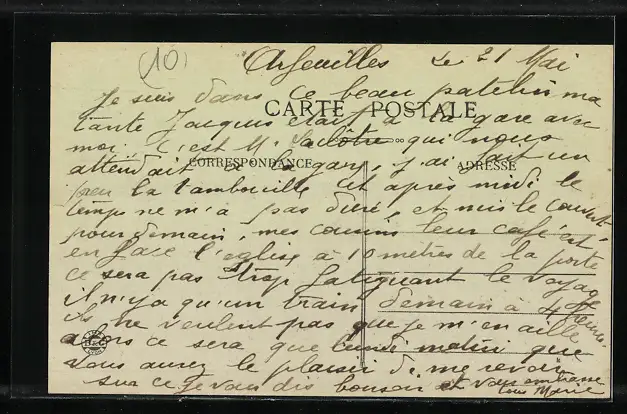 (10) Arfeuilles le 21 Mai
Je suis dans ce beau patelin ma
CARTE POSTALE
tante Jacques était à la gare avec
moi. C'est M. qui nous
attendait à la gare, j'ai fait un
CORRESPONDANCE
ADRESSE
peu la tambouille et après midi le
temps ne m'a pas duré, et mis le couvert
pour demain, mes cousins leur café est
en face l'église à 10 mètres de la porte
ce sera pas trop fatiguant le voyage
il n'y a qu'un train demain à 4 heures.
ils ne veulent pas que je m'en aille
alors ce sera que lundi matin que
vous aurez le plaisir de me revoir
sur ce je vous dis bonsoir et vous embrasse
tous Marie